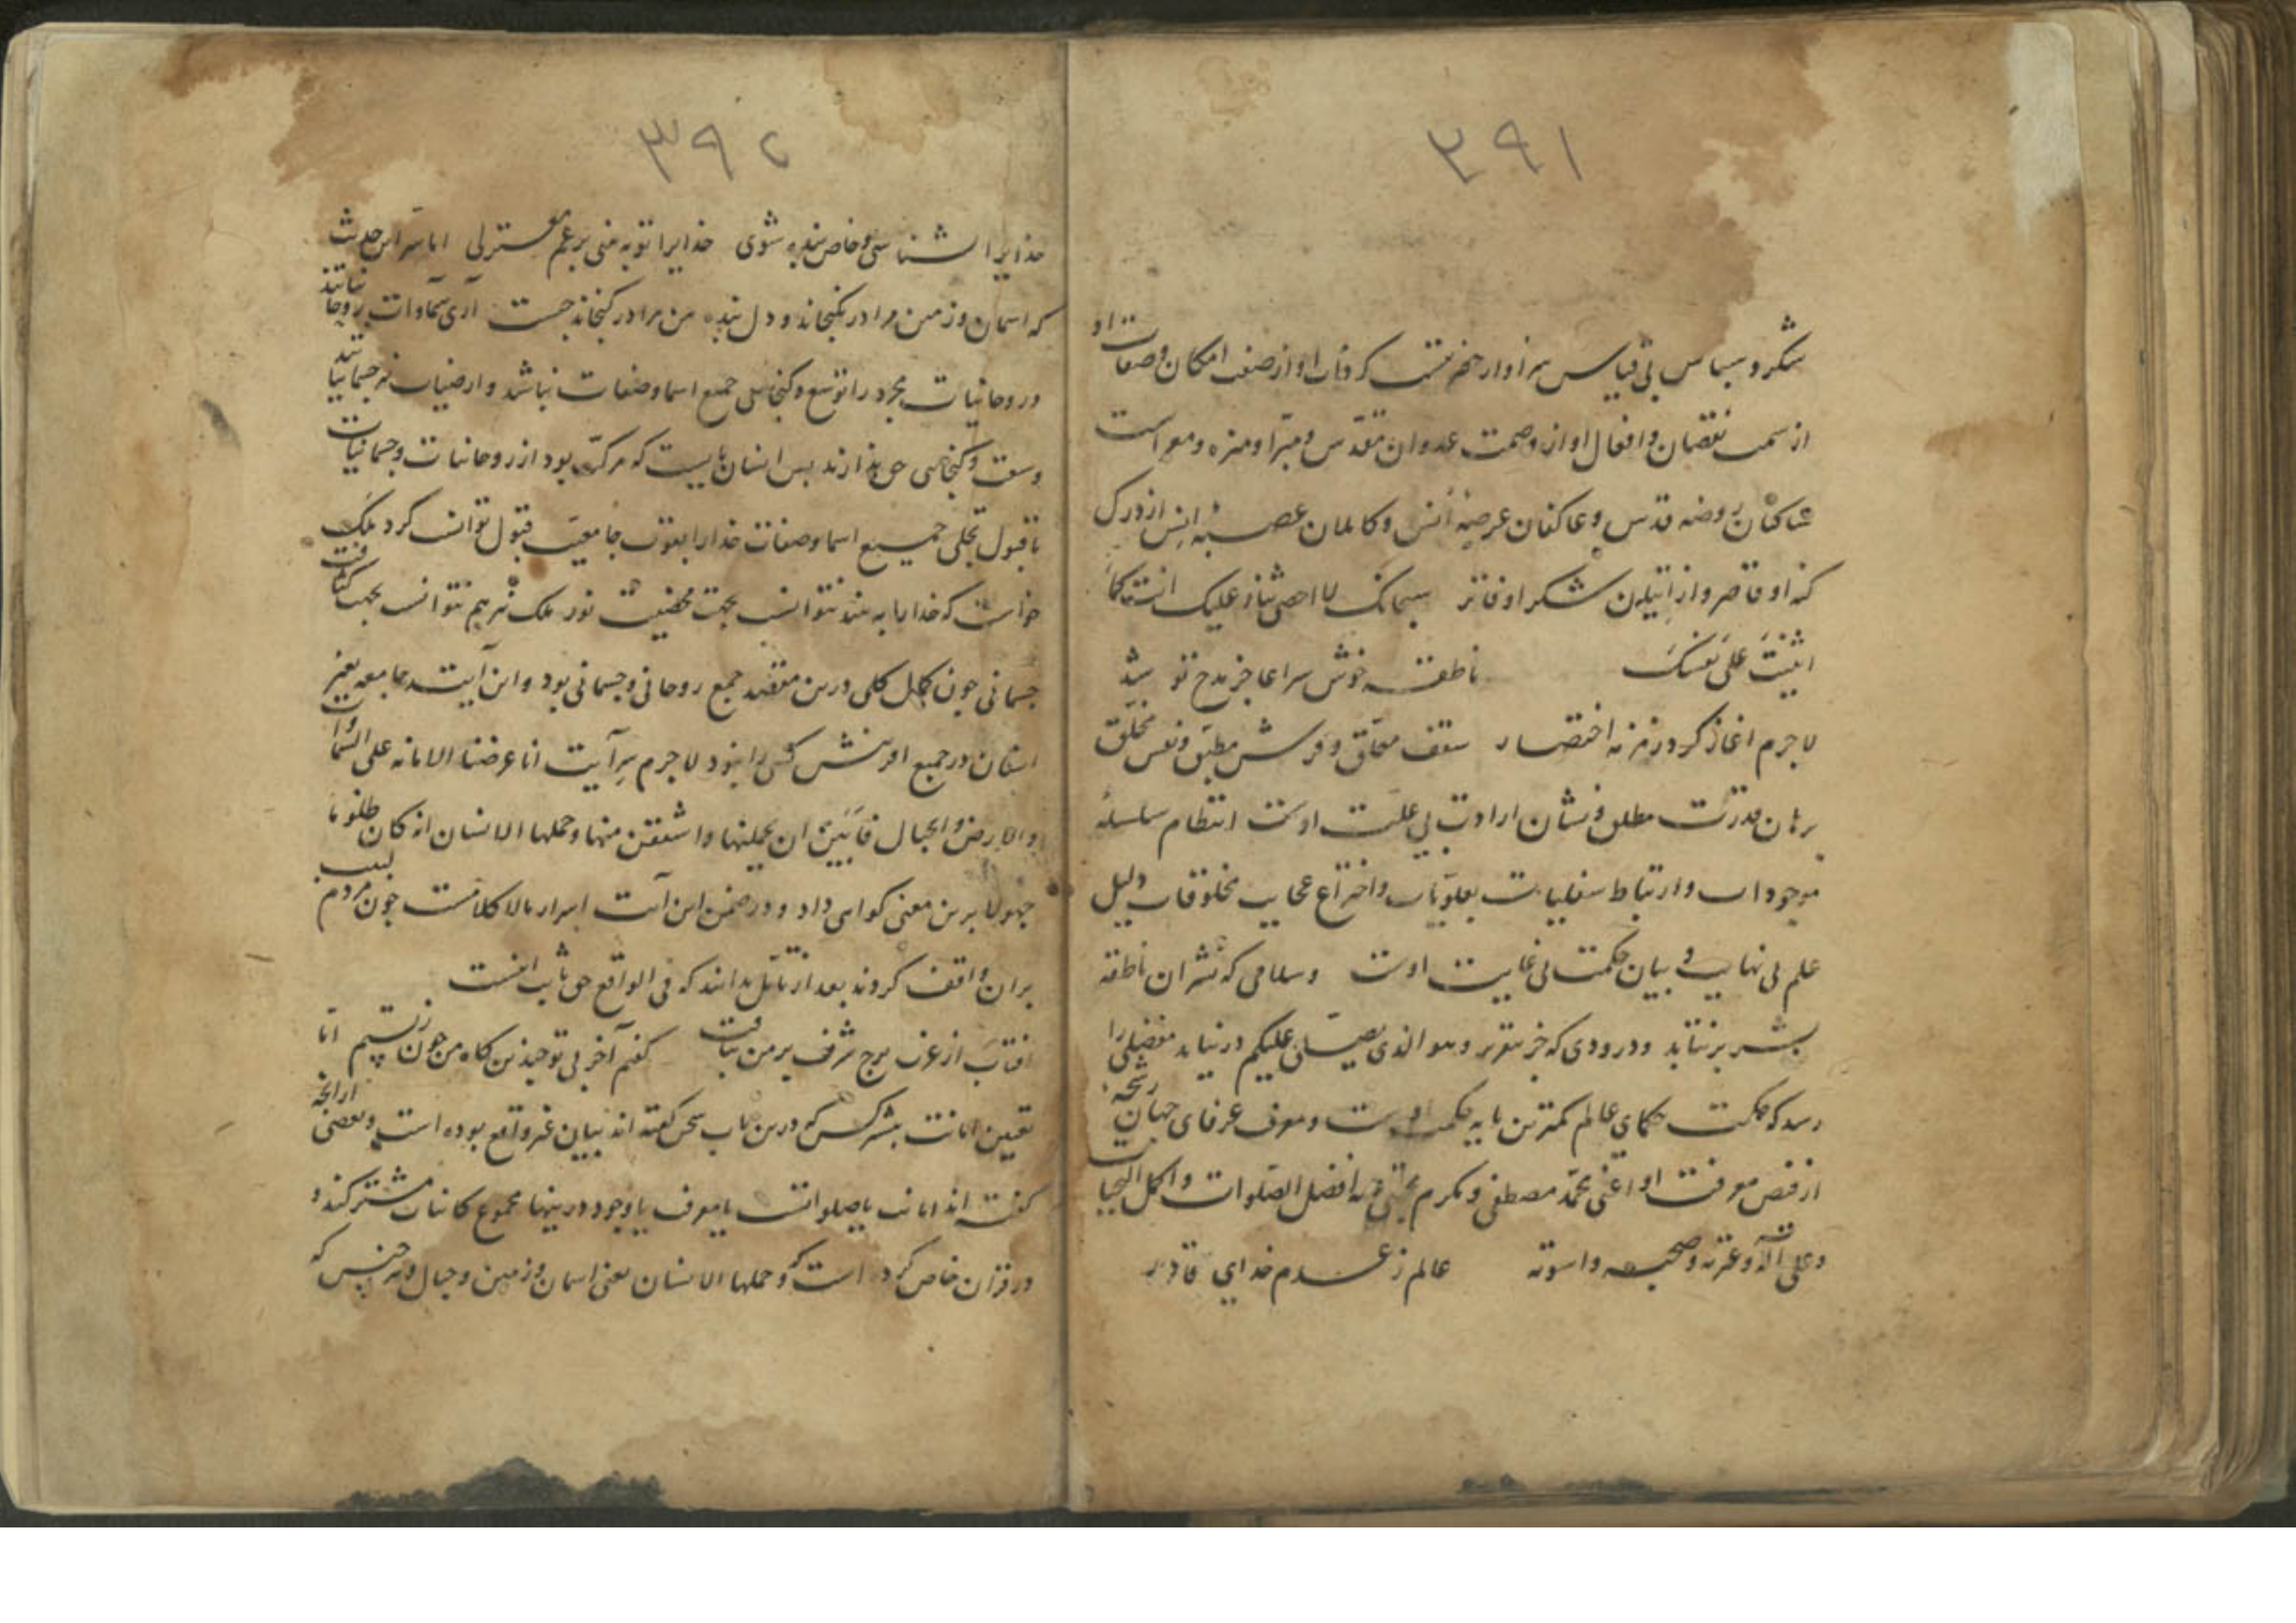 ۳۹۱
شکر و سپاس بی قیاس سزاوار حضرتیست که ذات او از صفت امکان و صفات او
از سمت نقصان و افعال او از وصمت عدوان مقدس و مبرا و منزه و معراست
ساکنان روضه قدس و عاکفان عرصهٔ انس و کاملان عصبهٔ انس از درک
کنه او قاصر و از شکر او فاتر سبحانک لا احصی ثناء علیک انت کما
اثنیت علی نفسک ناطقه خوش سرا عاجز مدح تو شد
لاجرم اغاز کرد زمزمه اختصار سقف معلق و فرش مطبق و نفس مخلق
برهان قدرت مطلق و نشان ارادت بی علت اوست انتظام سلسلهٔ
موجودات و ارتباط سفلیات بعلویات و اختراع عجایب مخلوقات دلیل
علم بی نهایت و بیان حکمت بی غایت اوست و سلامی که نشر ان ناطقه
بشر برنتابد و درودی که جز تقریر و هو الذی یصلی علیکم درنیابد مفضلی را
رسد که حکمت حکمای عالم کمترین پایه حکمت اوست و معرفت عرفای جهان رشحهٔ
از فیض معرفت او اعنی محمد مصطفی و مکرم مجتبی علیه افضل الصلوات و اکمل التحیات
و علی آله و عترته و صحبه و اسوته عالم ز عدم خدای قادر
۳۹۲
خدایرا شناسی و خاص بنده شوی خدایرا تو به بینی برغم معتزلی اما سر این حدیث
که اسمان و زمین مرا در نکنجاند و دل بنده من مرا در کنجاند جیست آری سماوات روحانیاتند
و روحانیات مجرد را توسع و کنجایی جمیع اسما و صفات نباشد و ارضیات نیز جسمانیاتند
وسعت و کنجایی حق ندارند بس انسان بایست که مرکب بود از روحانیات و جسمانیات
تا قبول تجلی جمیع اسما و صفات خدا را بقوت جامعیت قبول توانست کرد ملک
خواست که خدا را به بیند نتوانست بجهت محضیت نور ملک نیز هم نتوانست بجهت کثافت
جسمانی جون کمال کلی درین مقصد جمع روحانی و جسمانی بود و این آیت جامعه بغیر
انسان در جمیع افرینش کسی را نبود لاجرم سر آیت انا عرضنا الامانه علی السموات
و الارض و الجبال فابین ان یحملنها و اشفقن منها و حملها الانسان انه کان ظلوما
جهولا برین معنی کواهی داد و در ضمن این آیت اسرار بالا کلامست جون مردم لبیب
بران واقف کردند بعد از تامل بدانند که فی الواقع حق بثابت اینست
افتاب از غرب برج شرف بر من بتافت کفتم آخر بی توحید من کاه من جون زیستیم اما
تعیین امانت بیشتر کس که درین باب سخن کفته اند بیان غیر واقع بوده است و بعضی از انجه
کفته اند امانت یا صلواتست یا معرفت یا وجود درینها مجموع کاینات مشترکند و
در قران خاص کرده است که و حملها الانسان یعنی اسمان و زمین و جبال و هر جنس که